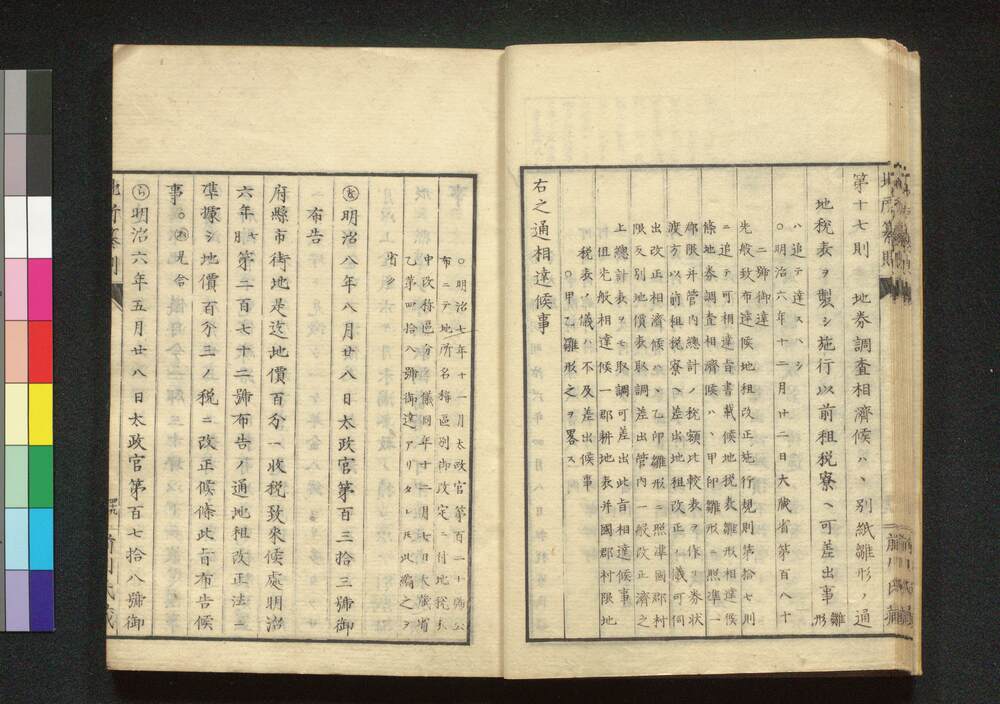 第十七則　地券調査相濟候ハヽ別紙雛形ノ通
地税表ヲ製シ施行以前租税寮ヘ可差出事 雛形
ハ追テ達スヘシ
○明治六年十二月廿二日大藏省第百八十
二號御達
先般致布達候地租改正施行規則第拾七則
ニ追テ可相達旨書載候地税表雛形相達候
條地券調査相濟候ハヽ甲印雛形ニ照準一
郡限并管内總計ノ税額比較表ヲ作リ券状
渡方以前租税寮ヘ可差出地租改正ノ儀可伺
出改正相濟候ハヽ乙印雛形ニ照準國郡村
限反別地價表取調差出管内一般改正濟之
上總計表ヲモ取調可差出此旨相達候事
但先般相達候一郡耕地表并國郡村限地
税表ノ儀ハ不及差出候事
○甲乙雛形之ヲ畧ス
右之通相達候事
○明治七年十一月太政官第百二十號公
布ニテ地所名稱區別御改定ニ付地税
中政務區會ノ儀同年十一月七日大藏省
乙第四拾八號御達アリタレ𪜈此編之ヲ
省ク
明治八年八月廿八日太政官第百三拾三號御
布告
府縣市街地是迄地價百分一收税致來候處明治
六年七月第二百七十二號布告ノ通地租改正法ニ
準據シ地價百分三ノ税ニ改正候條此旨布告候
事○見合
明治六年五月廿八日太政官第百七拾八號御
地所纂則